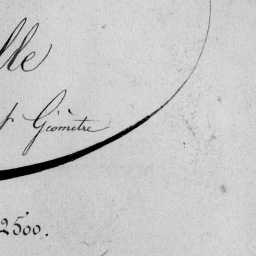 lle
Géomètre
2500.